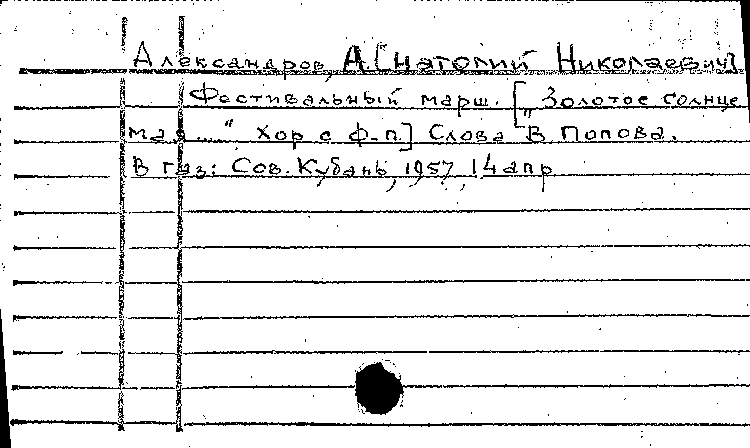 Александров, А.[натолий Николаевич]
Фестивальный марш. [„Золотое солнце
мая..." Хор с ф-п.] Слова В. Попова.
В газ: Сов. Кубань, 1957, 14 апр